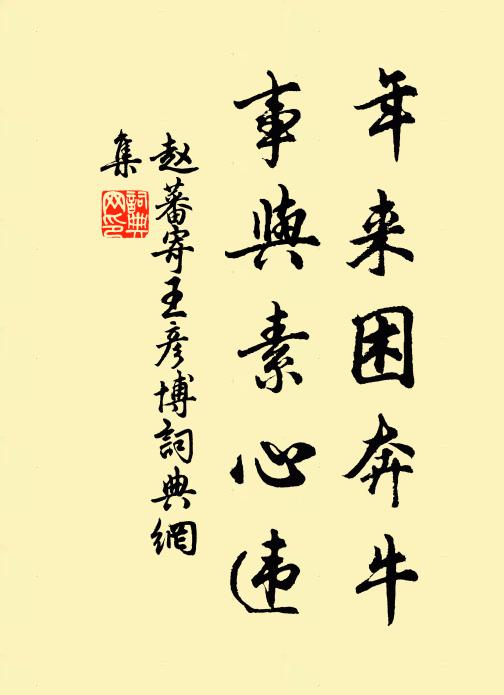 年来困奔牛
事與素心违
赵蕃寄王彦博詞典網
集
詞典
网印